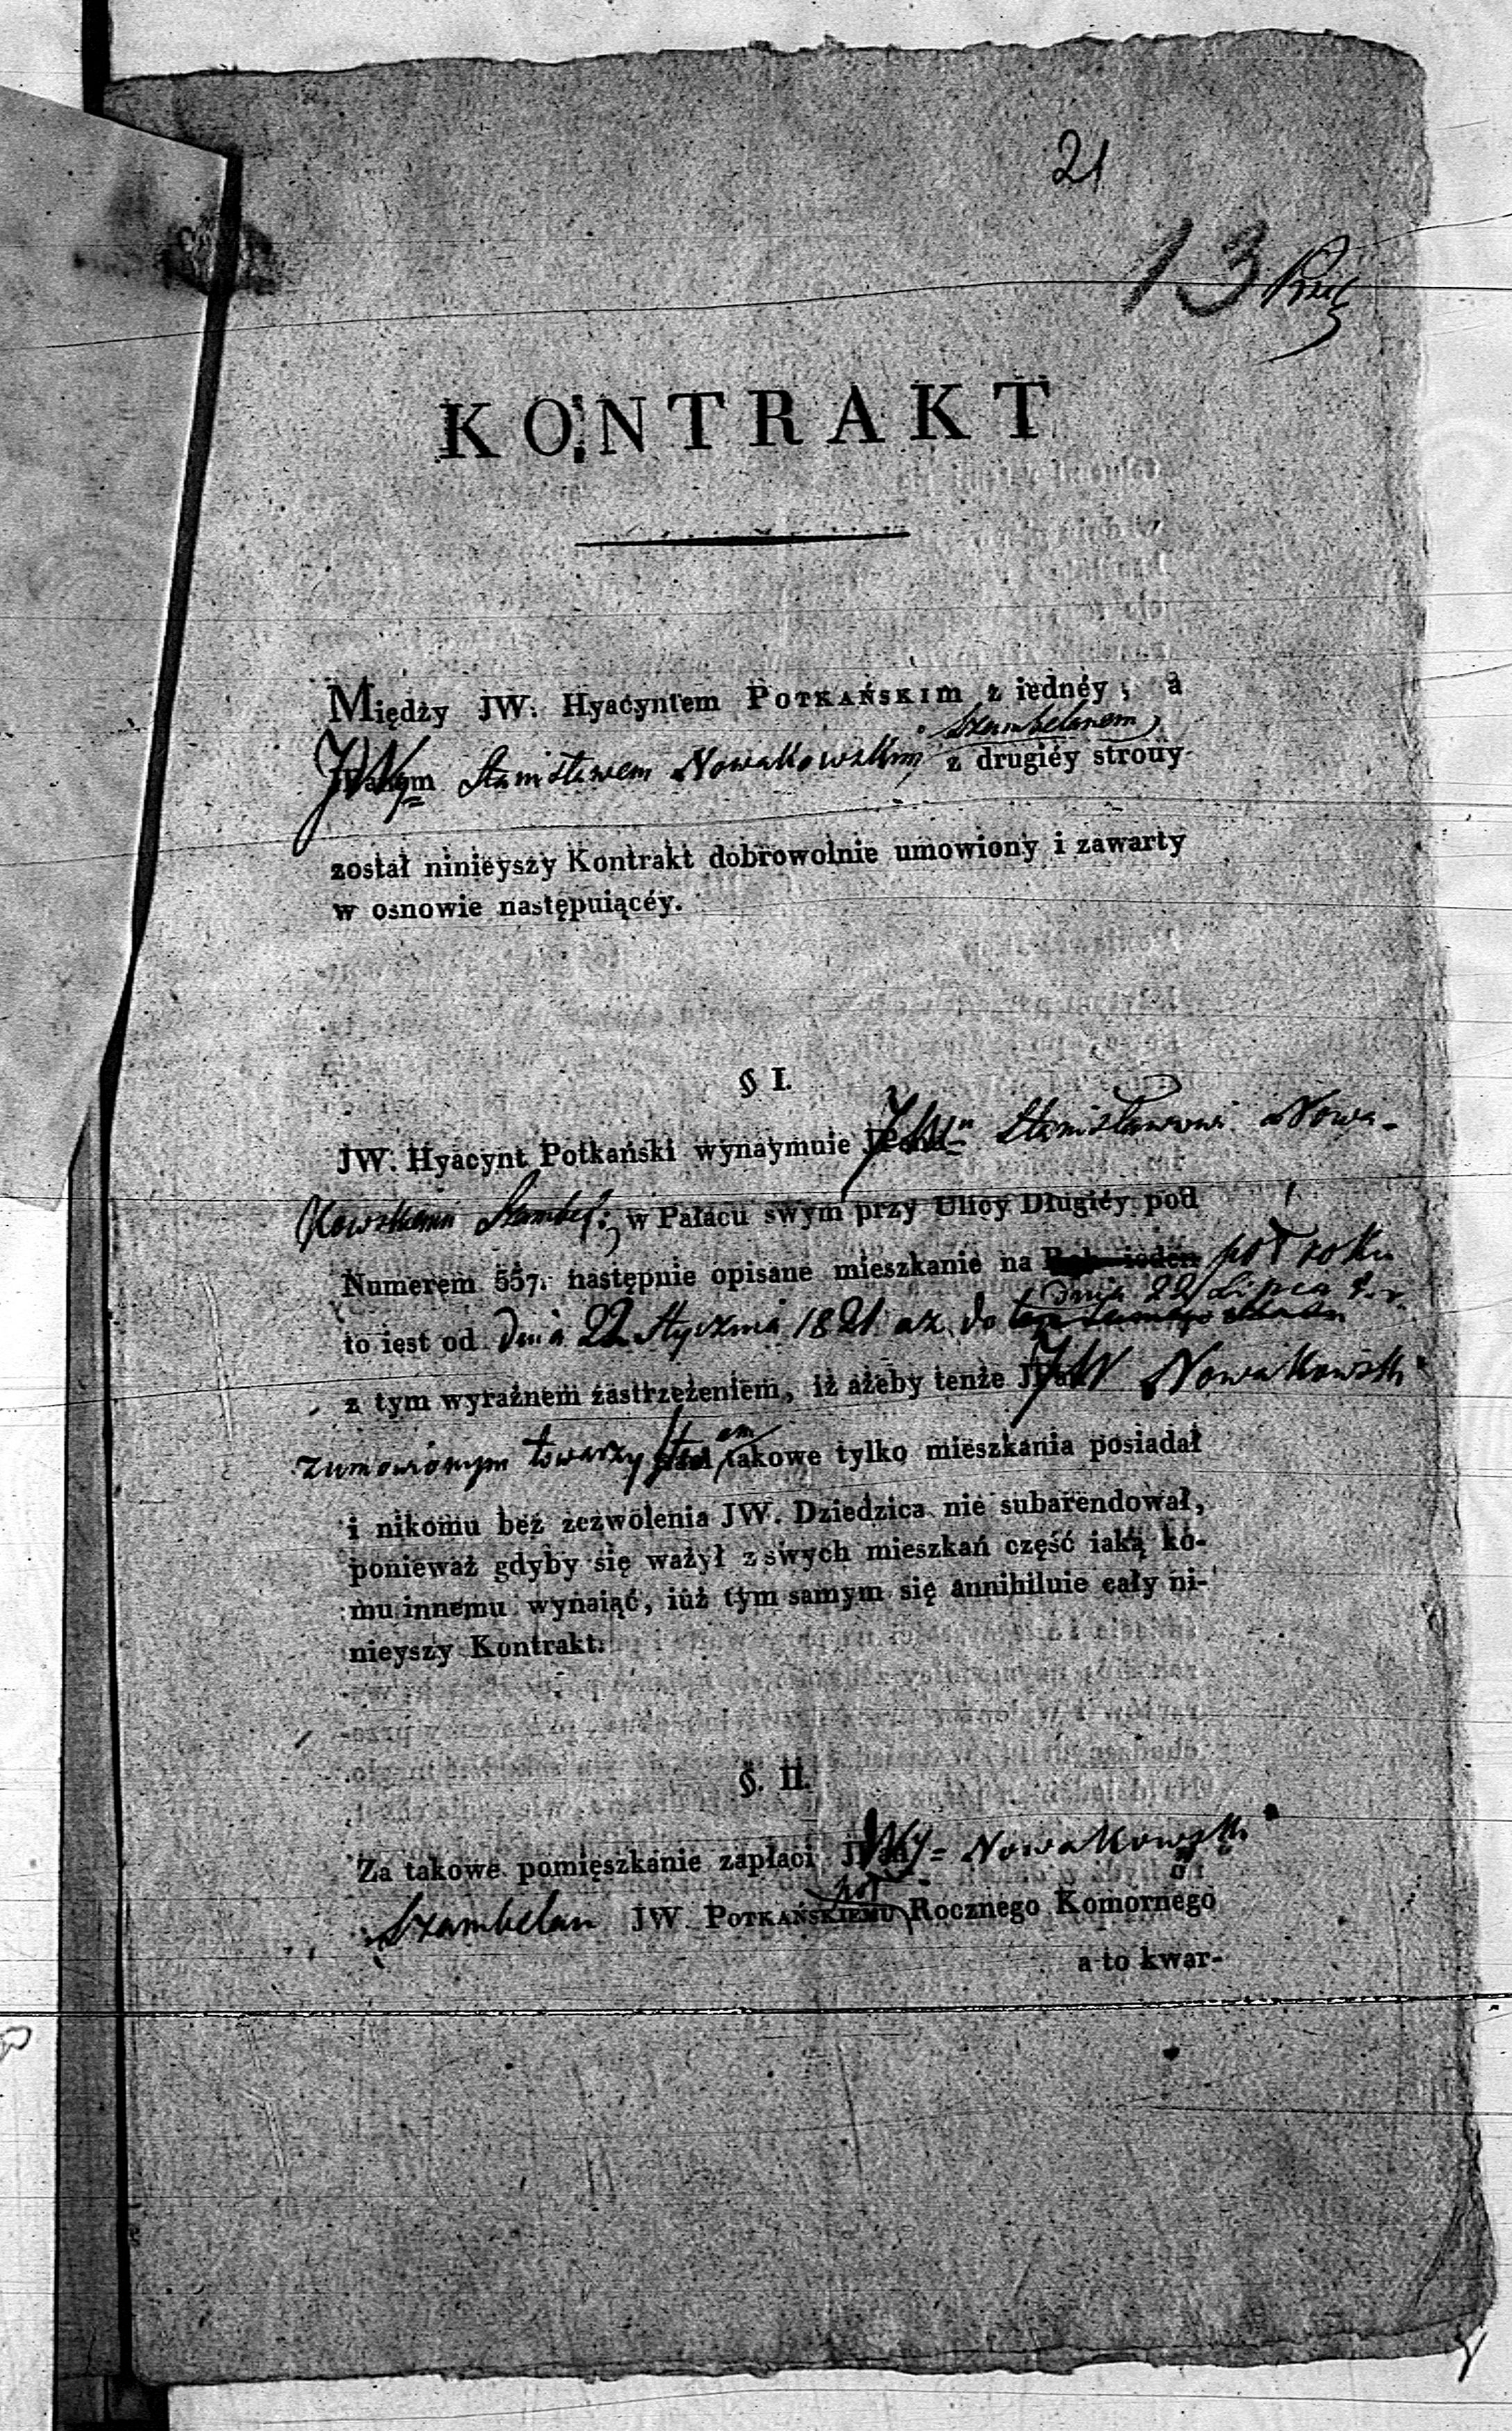 21
13
KONTRAKT
Między JW. Hyacyntem POTKAŃSKIM z iednéy, a
Szambelanem
JW Stanisławem Nowakowskim z drugiéy strony
został ninieyszy Kontrakt dobrowolnie umowiony i zawarty
w osnowie następuiącéy.
§ I.
JW. Hyacynt Potkański wynaymuie JW Stanisławowi Nowa-
kowskiemu Szambel: w Pałacu swym przy Ulicy Długiéy pod
Numerem 557. następnie opisane mieszkanie na Rok ieden poł roku
dnia 22 Lipca t. r.
to iest od dnia 22 Stycznia 1821 az do
z tym wyraźnem zastrzeżeniem, iż ażeby tenże JW Nowakowski
z umowionym towarzystwem takowe tylko mieszkania posiadał
i nikomu bez zezwolenia JW. Dziedzica nie subarendował,
ponieważ gdyby się ważył z swych mieszkań część iaką ko-
mu innemu wynaiąć, iuż tym samym się annihiluie cały ni-
nieyszy Kontrakt.
§. II.
Za takowe pomięszkanie zapłaci JW Nowakowski
poł
Szambelan JW. POTKAŃSKIEMU Rocznego Komornego
a to kwar-